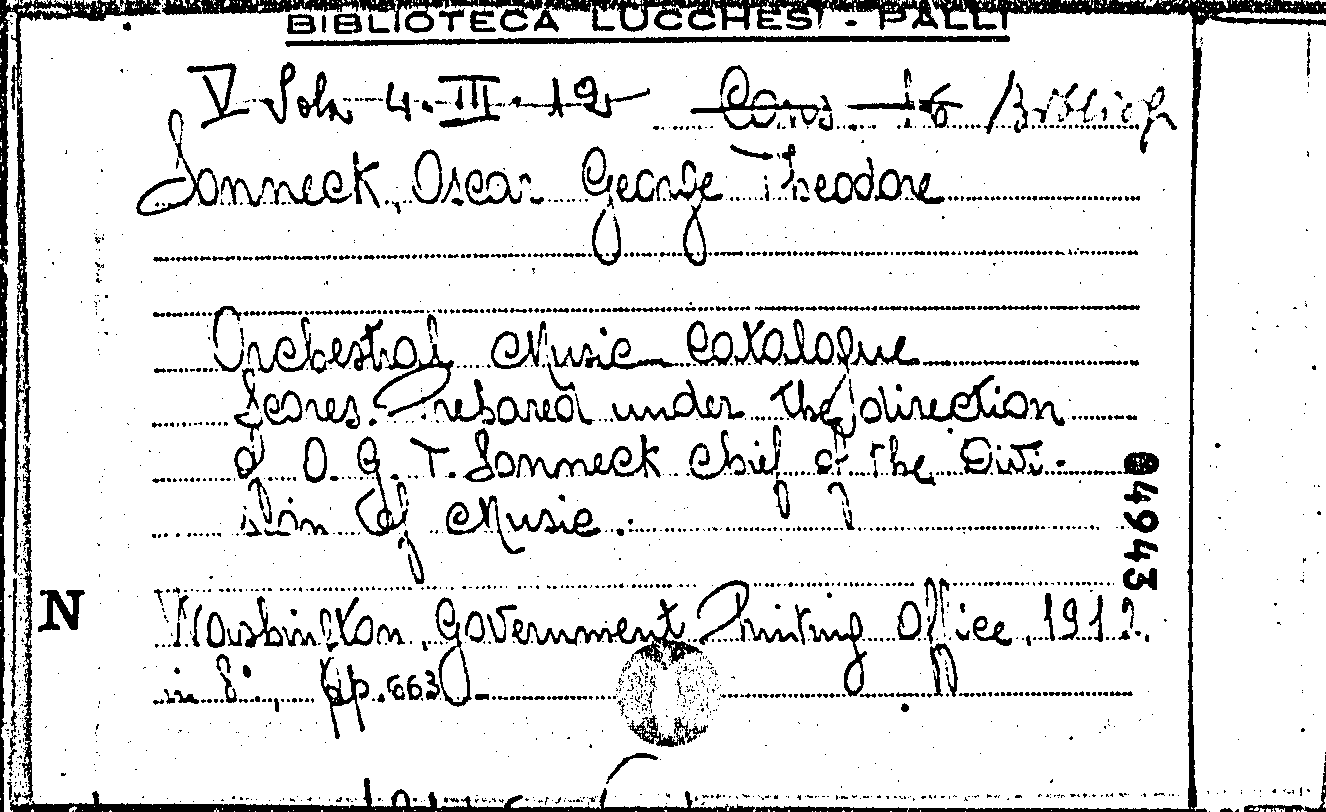 BIBLIOTECA LUCCHESI - PALLI
V Sola 4. III. 12 Cons. 16 Bibliogr
Sonneck, Oscar George Theodore
Orchestral Music Catalogue
Scores. Prepared under the direction
of O. G. T. Sonneck Chief of the Divi-
sion of Music.
04943
N
Washington, Government Printing Office, 1912.
in 8°, pp. 663